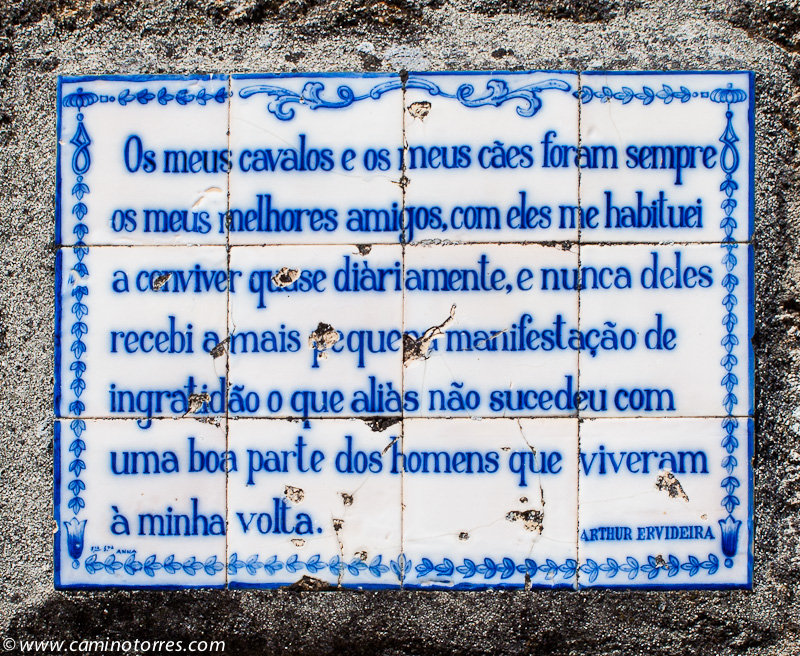 Os meus cavalos e os meus cães foram sempre
os meus melhores amigos, com eles me habituei
a conviver quase diàriamente, e nunca deles
recebi a mais pequena manifestação de
ingratidão o que aliàs não sucedeu com
uma boa parte dos homens que viveram
à minha volta.
ARTHUR ERVIDEIRA
FAB. STA ANNA
© www.caminotorres.com